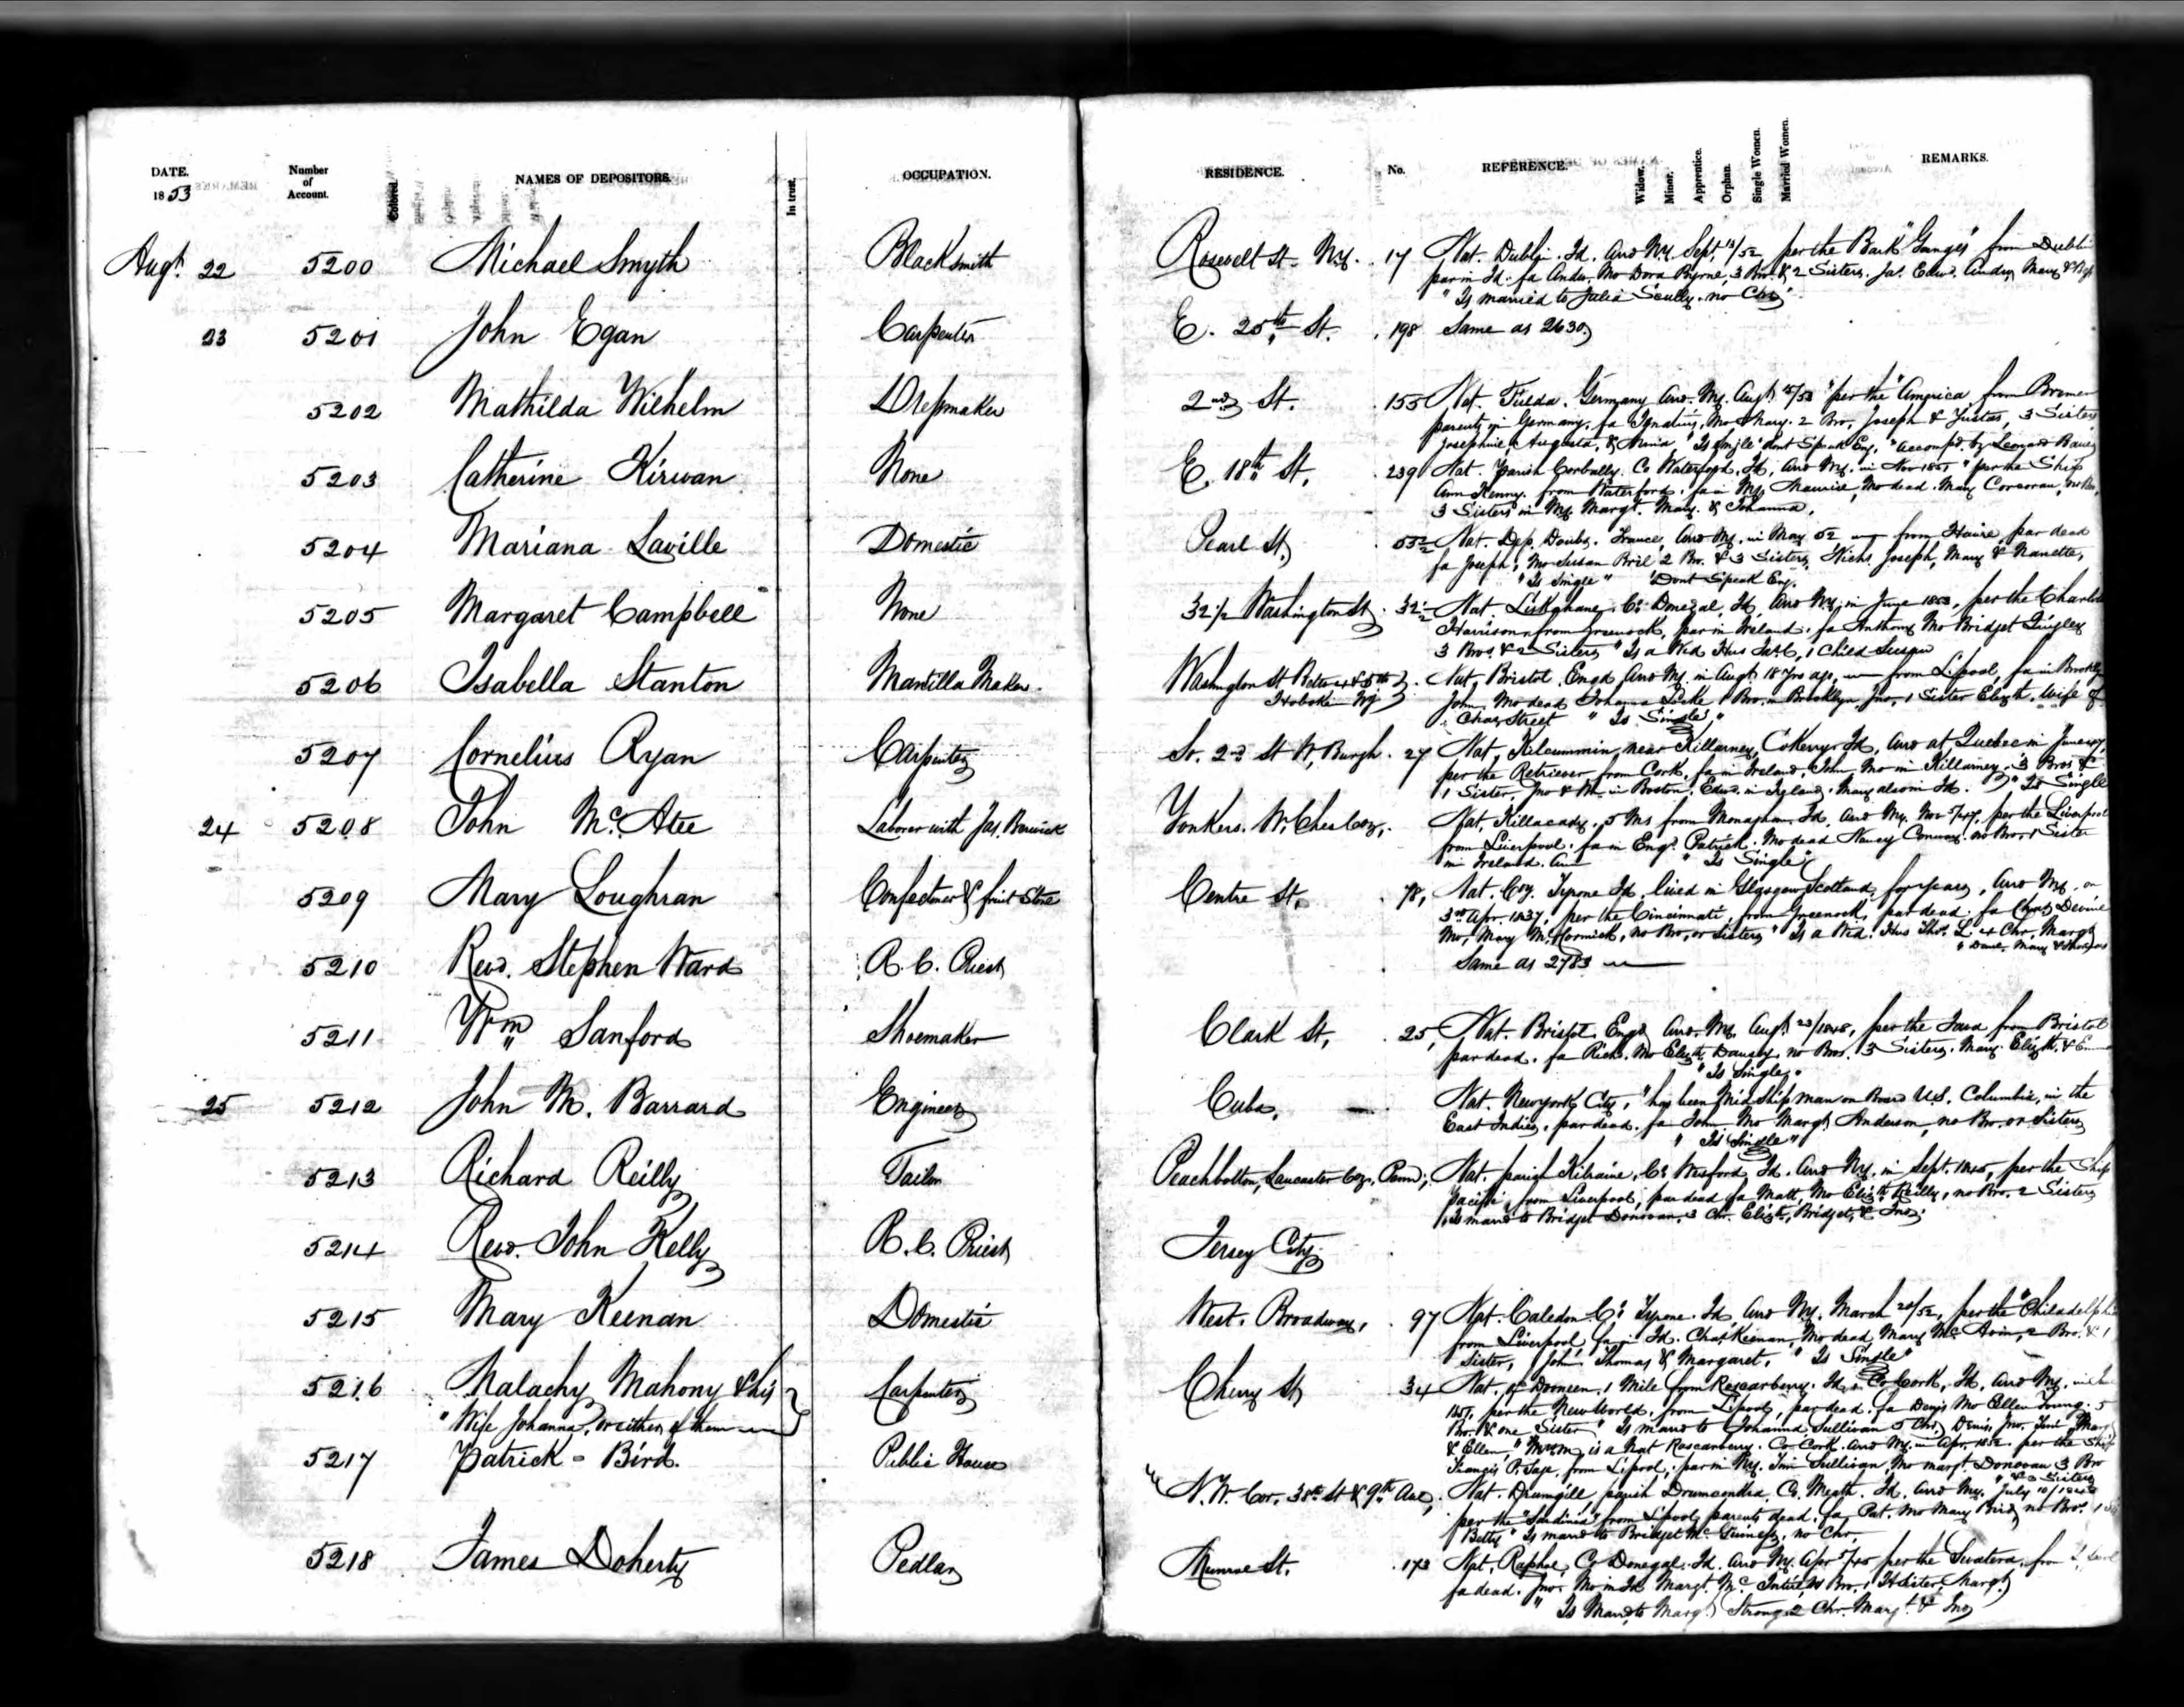 DATE. Number of Account. Colored. NAMES OF DEPOSITORS. In trust. OCCUPATION. RESIDENCE. No. REFERENCE. Widow. Minor. Apprentice. Orphan. Single Women. Married Women. REMARKS.
1853
Augt 22 5200 Michael Smyth Blacksmith Roosevelt St. N.Y. 17 Nat. Dublin. Id. arrd N.Y. Sept. 13/52 per the Bark "Ganges" from Dublin
par in Id. fa Andw. Mo Dora Byrne, 3 Bro. & 2 Sisters. Jas. Edwd. Andw, Mary &
"Is married to Julia Scully. no Chr"
23 5201 John Egan Carpenter E. 25th St. 198 Same as 2630
5202 Mathilda Wilhelm Dressmaker 2nd St. 155 Nat. Fulda. Germany arrd. N.Y. Augt. /53 "per the "America from Bremen
parents in Germany, fa Ignatius, Mo Mary. 2 Bro, Joseph & Justas, 3 Sisters
Josephine, Augusta, & "Is Single" dont Speak Eng. "accompd by Leonard
5203 Catherine Kirwan None E. 18th St. 239 Nat. Parish Corbally. Co Waterford, Id, arrd N.Y. in Nov 1851 "per the Ship
Ann Kenny. from Waterford. fa in N.Y. Maurice, Mo dead. Mary Corcoran, no Bro,
3 Sisters in N.Y. Margt. Mary. & Johanna.
5204 Mariana Laville Domestic Pearl St. 53½ Nat. Dep. Doubs. France, arrd N.Y. in May 52 from Havre, par dead
fa Joseph, Mo Susan Bril 2 Bro. & 3 Sisters, Nichs. Joseph, Mary & Nanette,
"Is Single" "Dont Speak Eng.
5205 Margaret Campbell None 32½ Washington St. 32½ Nat. Co. Donegal, Id, arrd N.Y. in June 1853, per the Charlotte
Harrison from Greenock, par in Ireland. fa Anthony Mo Bridget
3 Bros. & 2 Sisters "Is a Wid Hus 1 Child Susan
5206 Isabella Stanton Mantilla Maker Washington St Betw 4 & 5th Nat. Bristol. Engd arrd N.Y. in Augt. 18 Yrs ago, from L'pool, fa in Brooklyn
Hoboken NJ John, Mo dead Johanna 1 Bro. in Brooklyn, Jno, 1 Sister Elizth. Wife of
Chas Street "Is Single"
5207 Cornelius Ryan Carpenter So. 2nd St W. Burgh. 27 Nat, Kilcummin, near Killarney, Co Kerry Id, arrd at Quebec in June
per the Retriever from Cork, fa in Ireland, John Mo in Killarney. 3 Bros &
1 Sister, Jno & in Boston, Edwd. in Mary also in Id. "Is Single
24 5208 John McAtee Laborer with Jas. Berwick Yonkers. W. Ches Coy. Nat, Killacady. 5 Ms from Monaghan. Id, arrd N.Y. Nov 5/47, per the Liverpool
from Liverpool. fa in Engd. Patrick. Mo dead Nancy Conway. no Bro. 1 Sister
in Ireland. Ann "Is Single"
5209 Mary Loughran Confectioner & fruit Store Centre St. 78, Nat. Coy. Tyrone Id, lived in Glasgow Scotland, for years, arrd N.Y. on
3rd Apr. 1837, per the Cincinnati, from Greenock, par dead. fa Chas. Devine
Mo, Mary McCormick, no Bro, or Sisters "Is a Wid. Hus Thos. L. 4 Chr, Margt,
Danl, Mary & Thomas
5210 Revd. Stephen Ward R. C. Priest Same as 2783
5211 Wm Sanford Shoemaker Clark St. 25, Nat. Bristol. Engd arrd. N.Y. Augt. 23/1848, per the Java from Bristol
par dead. fa Richd. Mo Elizth Dancey, no Bros. 3 Sisters. Mary Elizth. &
"Is Single"
25 5212 John M. Barrard Engineer Cuba, Nat. New york City, "has been Mid Ship man on Board U.S. Columbia, in the
East Indies, par dead. fa John. Mo Margt. Anderson, no Bro. or Sisters
"Is Single"
5213 Richard Reilly Tailor Peachbottom, Lancaster Coy, Penn; Nat. parish Kilraine, Co. Wexford, Id. arrd N.Y. in Sept. 1845, per the Ship
Pacific, from Liverpool, par dead fa Matt, Mo Elizth Reilly, no Bro. 2 Sisters
Is marrd to Bridget Donovan, 3 Chr. Elizth, Bridget, & Jno;
5214 Revd. John Kelly R. C. Priest Jersey City
5215 Mary Keenan Domestic West. Broadway, 97 Nat. Caledon Co. Tyrone. Id arrd N.Y. March 20/52, per the "Philadelphia
from Liverpool, fa in Id. Chas. Keenan, Mo dead Mary 2 Bro. & 1
Sister, John Thomas & Margaret, "Is Single"
5216 Malachy Mahony & his Carpenter Cherry St 34 Nat. of 1 Mile from Roscarberry. Id, Co Cork, Id, arrd N.Y. in
" Wife Johanna, or either of them 1851, per the New World, from L'pool, par dead. fa Denis Mo Ellen Young. 5
Bro. & one Sister "Is marrd to Johanna Sullivan 5 Chr, Denis, Jno. Margt
& Ellen," is a Nat Roscarberry. Co Cork arrd N.Y. in Apr. 1852. per the Ship
5217 Patrick - Bird. Public House N.W. Cor. 38th St & 9th Ave, Francis P. Sage, from L'pool, par in N.Y. Tim Sullivan, Mo margt. Donovan 3 Bro
& 3 Sisters
Nat. Drumgill, parish Drumcondra, Co. Meath. Id. arrd N.Y. July
per the "Sardinia" from L'pool, parents dead. fa Pat. Mo Mary Bird no Bro. 1
Betty "Is marrd to Bridget McGuiness, no Chr,
5218 James Doherty Pedlar Munroe St. 173 Nat. Raphoe, Co Donegal. Id. arrd N.Y. Apr /45 per the Swatera, from
fa dead. Jno. Mo in Id Margt. no Bro. 1 Sister, Margt.
" Is Marrd to Margt. Strong 2 Chr. Margt. & Jno